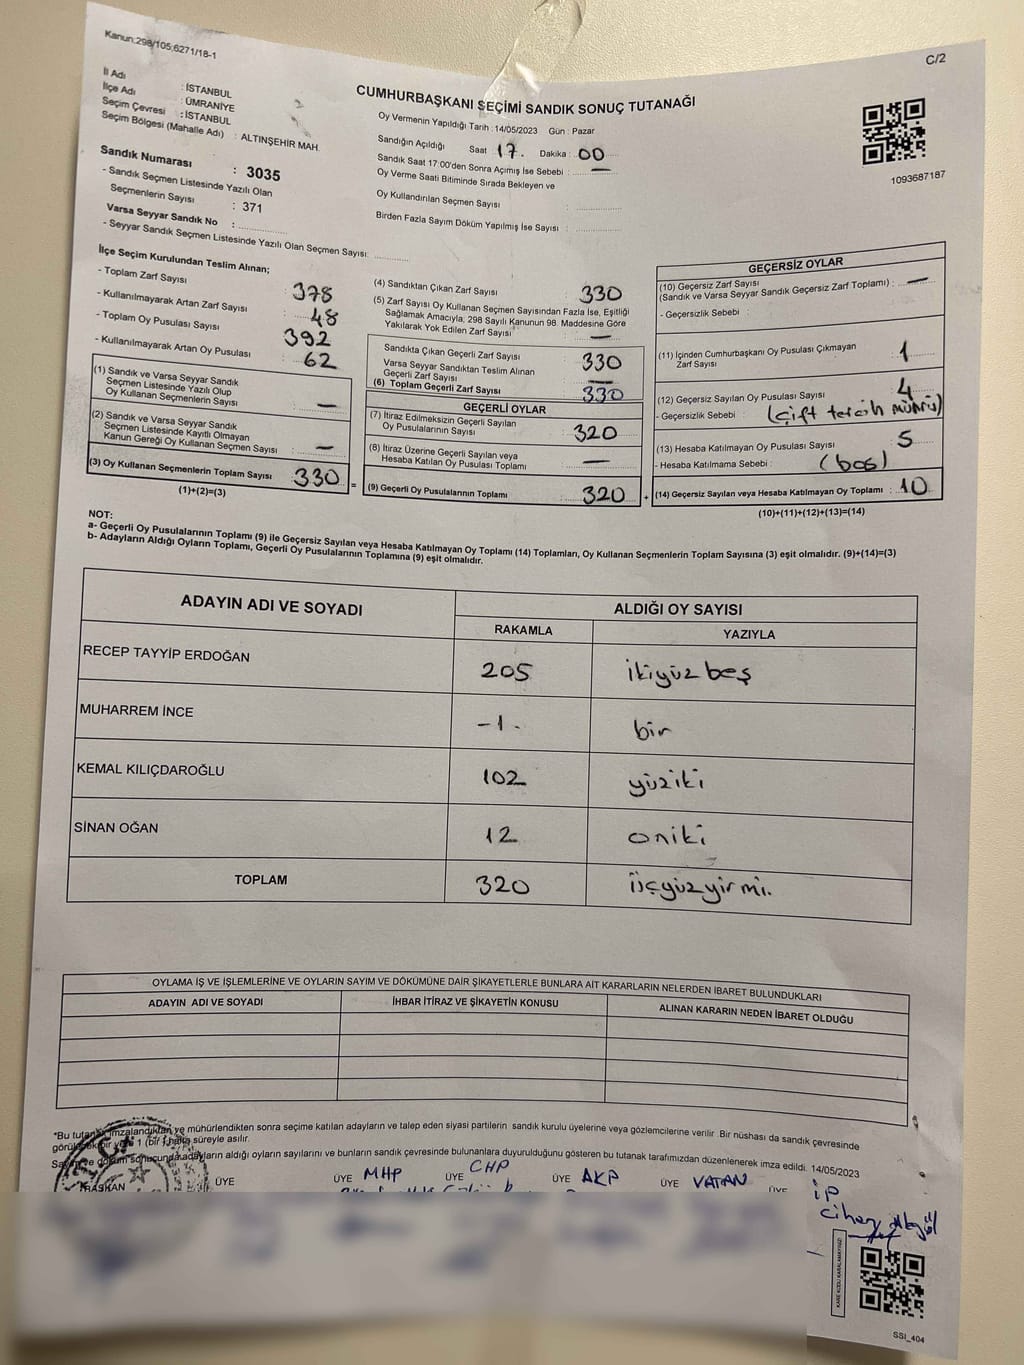 Kanun:298/105;6271/18-1
C/2
İl Adı : İSTANBUL
İlçe Adı : ÜMRANİYE
Seçim Çevresi : İSTANBUL
Seçim Bölgesi (Mahalle Adı) : ALTINŞEHİR MAH.
Sandık Numarası : 3035
- Sandık Seçmen Listesinde Yazılı Olan
Seçmenlerin Sayısı : 371
Varsa Seyyar Sandık No :
- Seyyar Sandık Seçmen Listesinde Yazılı Olan Seçmen Sayısı:
CUMHURBAŞKANI SEÇİMİ SANDIK SONUÇ TUTANAĞI
Oy Vermenin Yapıldığı Tarih : 14/05/2023 Gün : Pazar
Sandığın Açıldığı Saat 17. Dakika : 00
Sandık Saat 17:00'den Sonra Açılmış İse Sebebi : —
Oy Verme Saati Bitiminde Sırada Bekleyen ve
Oy Kullandırılan Seçmen Sayısı :
Birden Fazla Sayım Döküm Yapılmış İse Sayısı :
1093687187
İlçe Seçim Kurulundan Teslim Alınan;
- Toplam Zarf Sayısı : 378
- Kullanılmayarak Artan Zarf Sayısı : 48
- Toplam Oy Pusulası Sayısı : 392
- Kullanılmayarak Artan Oy Pusulası : 62
(1) Sandık ve Varsa Seyyar Sandık
Seçmen Listesinde Yazılı Olup
Oy Kullanan Seçmenlerin Sayısı : —
(2) Sandık ve Varsa Seyyar Sandık
Seçmen Listesinde Kayıtlı Olmayan
Kanun Gereği Oy Kullanan Seçmen Sayısı : —
(3) Oy Kullanan Seçmenlerin Toplam Sayısı : 330 =
(1)+(2)=(3)
(4) Sandıktan Çıkan Zarf Sayısı : 330
(5) Zarf Sayısı Oy Kullanan Seçmen Sayısından Fazla İse, Eşitliği
Sağlamak Amacıyla; 298 Sayılı Kanunun 98. Maddesine Göre
Yakılarak Yok Edilen Zarf Sayısı : —
Sandıkta Çıkan Geçerli Zarf Sayısı : 330
Varsa Seyyar Sandıktan Teslim Alınan
Geçerli Zarf Sayısı : —
(6) Toplam Geçerli Zarf Sayısı : 330
GEÇERLİ OYLAR
(7) İtiraz Edilmeksizin Geçerli Sayılan
Oy Pusulalarının Sayısı : 320
(8) İtiraz Üzerine Geçerli Sayılan veya
Hesaba Katılan Oy Pusulası Toplamı : —
(9) Geçerli Oy Pusulalarının Toplamı : 320 +
GEÇERSİZ OYLAR
(10) Geçersiz Zarf Sayısı
(Sandık ve Varsa Seyyar Sandık Geçersiz Zarf Toplamı) : —
- Geçersizlik Sebebi :
(11) İçinden Cumhurbaşkanı Oy Pusulası Çıkmayan
Zarf Sayısı : 1
(12) Geçersiz Sayılan Oy Pusulası Sayısı : 4
- Geçersizlik Sebebi : (çift tercih mührü)
(13) Hesaba Katılmayan Oy Pusulası Sayısı : 5
- Hesaba Katılmama Sebebi : (boş)
(14) Geçersiz Sayılan veya Hesaba Katılmayan Oy Toplamı : 10
(10)+(11)+(12)+(13)=(14)
NOT:
a- Geçerli Oy Pusulalarının Toplamı (9) ile Geçersiz Sayılan veya Hesaba Katılmayan Oy Toplamı (14) Toplamları, Oy Kullanan Seçmenlerin Toplam Sayısına (3) eşit olmalıdır. (9)+(14)=(3)
b- Adayların Aldığı Oyların Toplamı, Geçerli Oy Pusulalarının Toplamına (9) eşit olmalıdır.
ADAYIN ADI VE SOYADI
ALDIĞI OY SAYISI
RAKAMLA YAZIYLA
RECEP TAYYİP ERDOĞAN 205 ikiyüz beş
MUHARREM İNCE -1- bir
KEMAL KILIÇDAROĞLU 102 yüziki
SİNAN OĞAN 12 oniki
TOPLAM 320 üçyüzyirmi.
OYLAMA İŞ VE İŞLEMLERİNE VE OYLARIN SAYIM VE DÖKÜMÜNE DAİR ŞİKAYETLERLE BUNLARA AİT KARARLARIN NELERDEN İBARET BULUNDUKLARI
ADAYIN ADI VE SOYADI İHBAR İTİRAZ VE ŞİKAYETİN KONUSU ALINAN KARARIN NEDEN İBARET OLDUĞU
*Bu tutanak imzalandıktan ve mühürlendikten sonra seçime katılan adayların ve talep eden siyasi partilerin sandık kurulu üyelerine veya gözlemcilerine verilir. Bir nüshası da sandık çevresinde
görülebilir yere 1 (bir) hafta süreyle asılır.
Sayım ve döküm sonucunda adayların aldığı oyların sayılarını ve bunların sandık çevresinde bulunanlara duyurulduğunu gösteren bu tutanak tarafımızdan düzenlenerek imza edildi. 14/05/2023
BAŞKAN ÜYE ÜYE MHP ÜYE CHP ÜYE AKP ÜYE VATAN ÜYE İP
KARE KODU KARALAMAYINIZ!
SSI_404